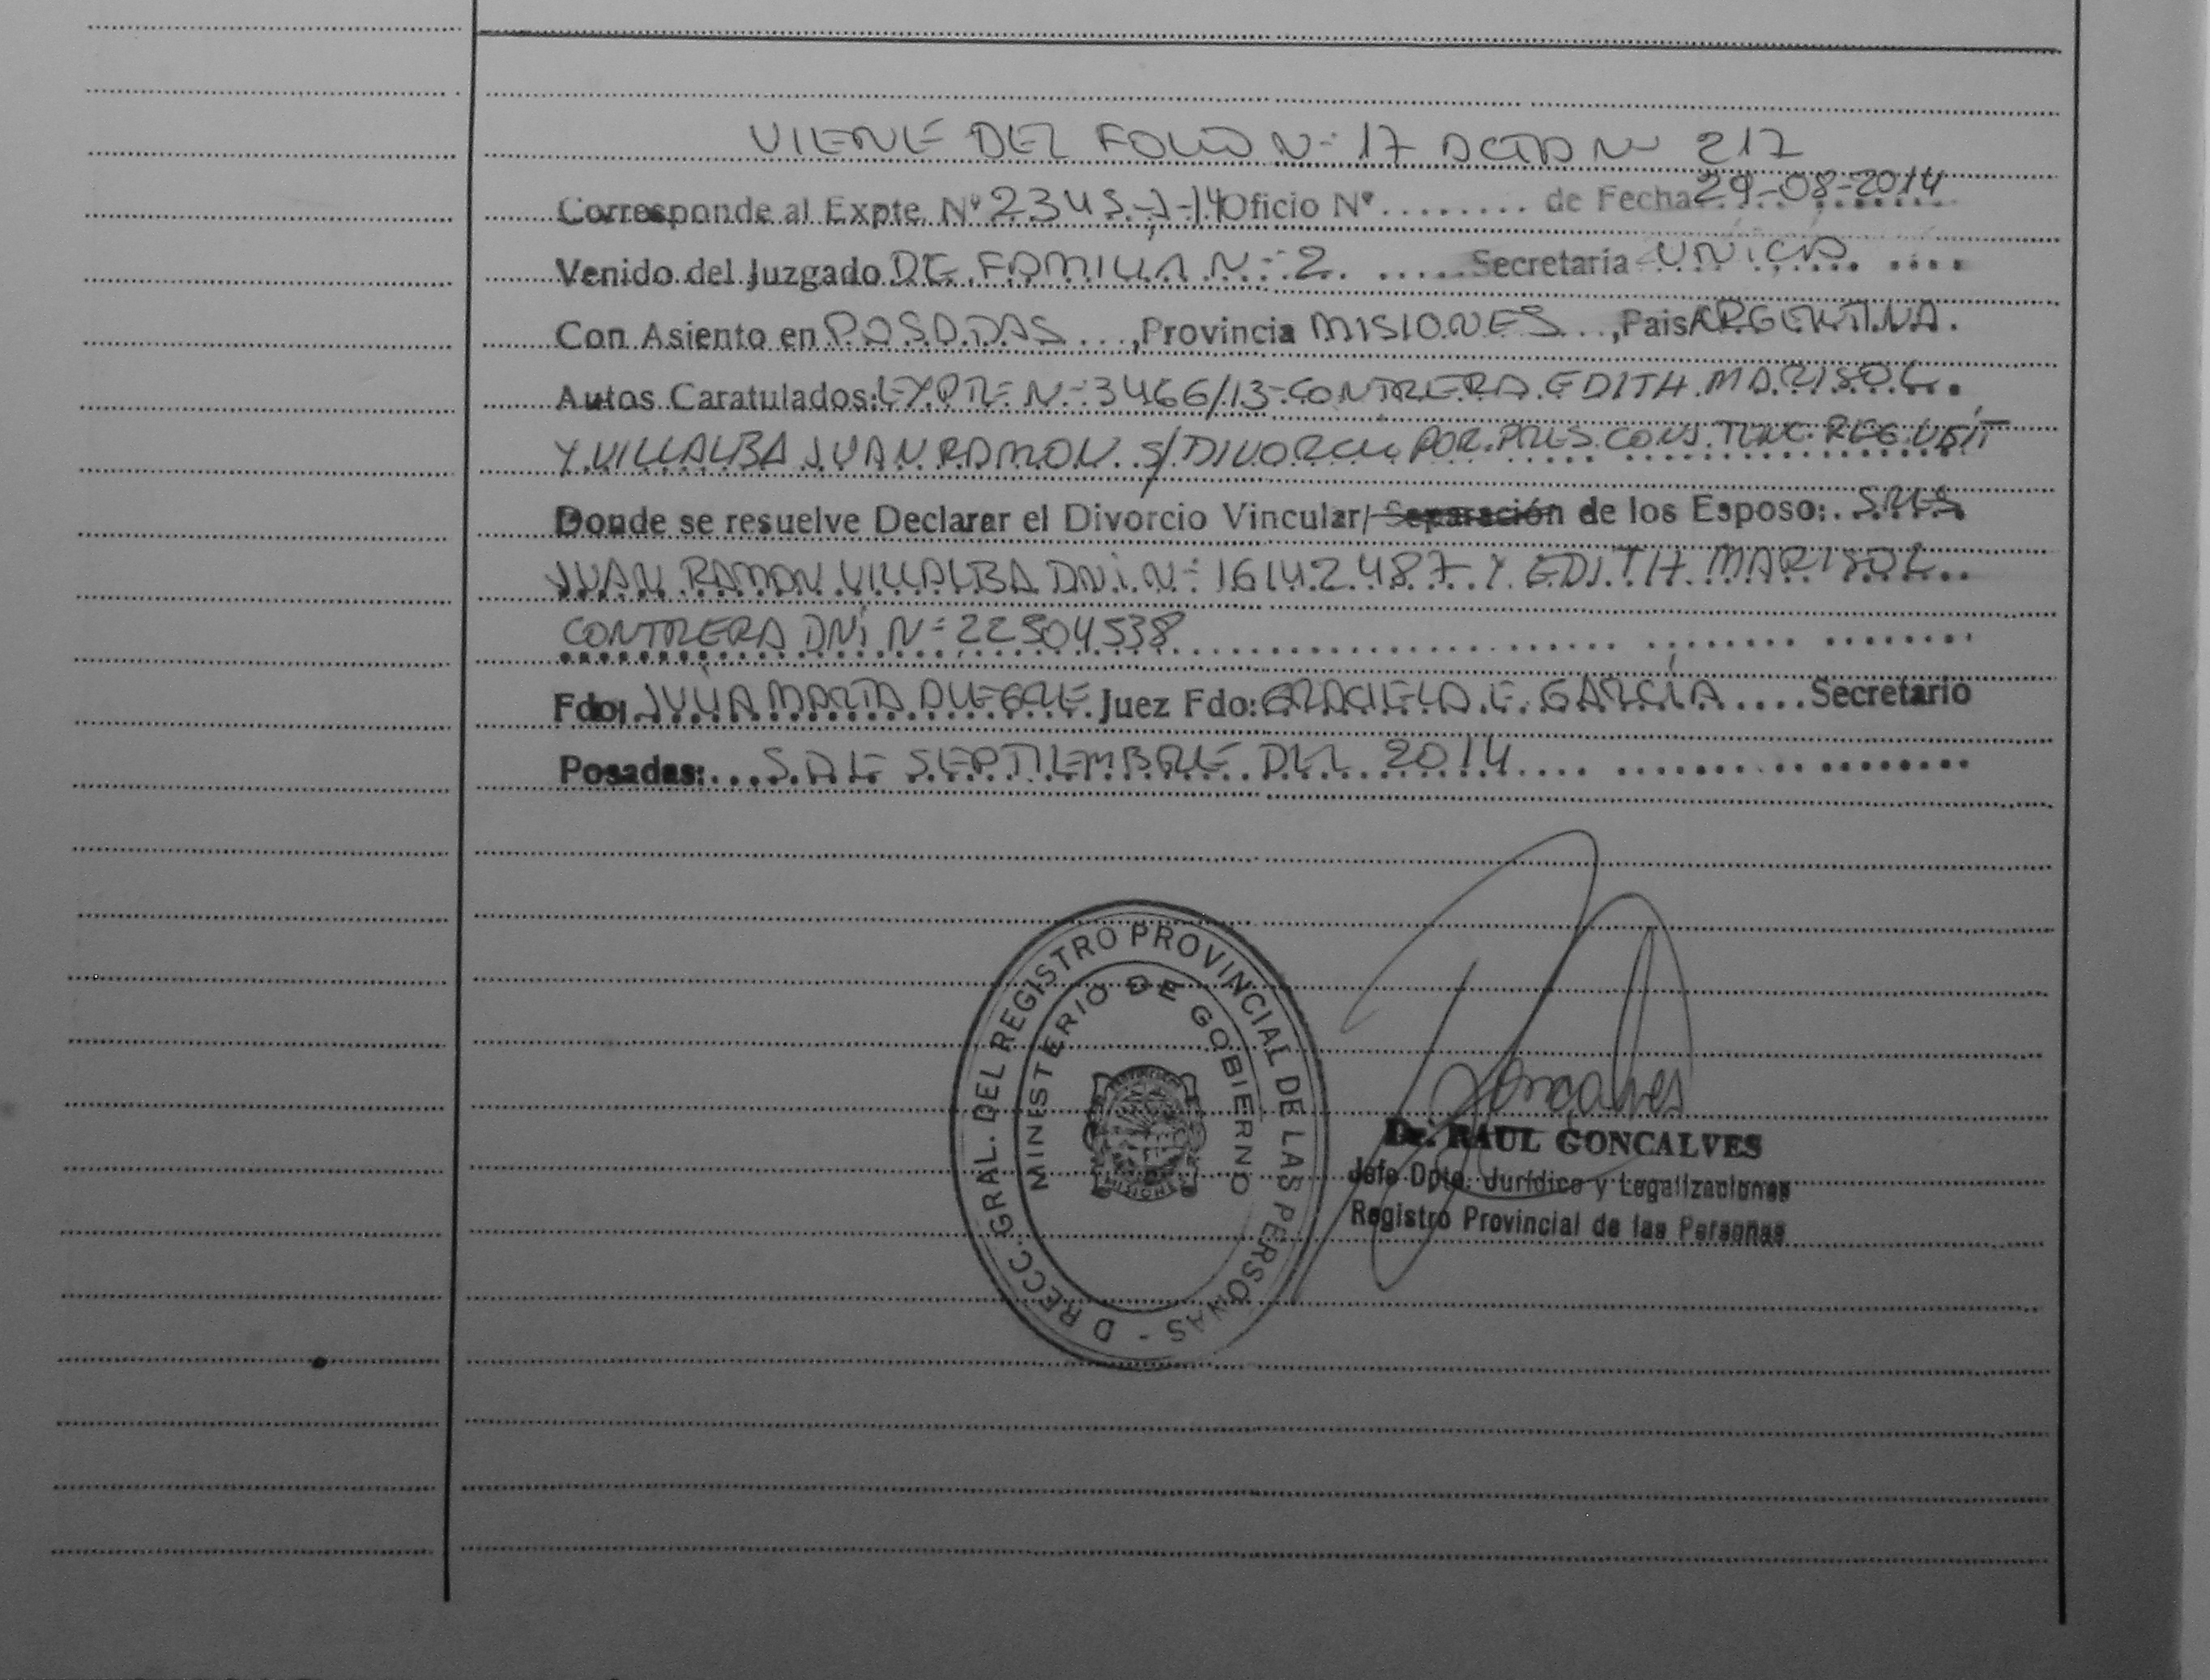 VIENE DEL FOLIO Nº 17 ACTA Nº 217
Corresponde al Expte. Nº 2345-J-14 Oficio Nº ......... de Fecha 29-08-2014
Venido del Juzgado DE FAMILIA Nº 2. ..... Secretaria UNICA
Con Asiento en POSADAS ..., Provincia MISIONES ..., Pais ARGENTINA.
Autos Caratulados: EXPTE Nº 3466/13 - CONTRERA EDITH MARISOL
Y VILLALBA JUAN RAMON S/DIVORCIO POR PRES. CONJ.
Donde se resuelve Declarar el Divorcio Vincular/ Separación de los Esposo: SRES
JUAN RAMON VILLALBA DNI. Nº 16142.487 Y EDITH MARISOL
CONTRERA DNI Nº 22504538
Fdo: JULIA MARTA ALEGRE Juez Fdo: GRACIELA E. GARCÍA .... Secretario
Posadas: ... 5 DE SEPTIEMBRE DEL 2014
D RECC. GRAL. DEL REGISTRO PROVINCIAL DE LAS PERSONAS -
MINISTERIO DE GOBIERNO
MISIONES
Goncalves
Dr. RAUL GONCALVES
Jefe Dpto. Jurídico y Legalizaciones
Registro Provincial de las Personas